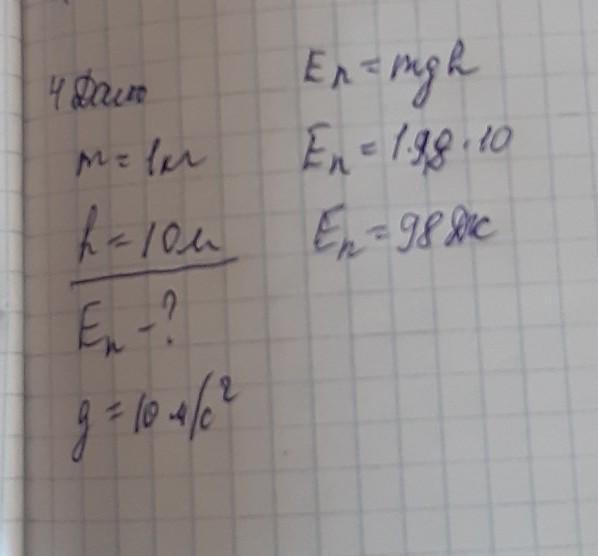 4 Дано
m = 1кг
h = 10м
Eп - ?
g = 10 м/с²
Eп = mgh
Eп = 1·9,8·10
Eп = 98 Дж